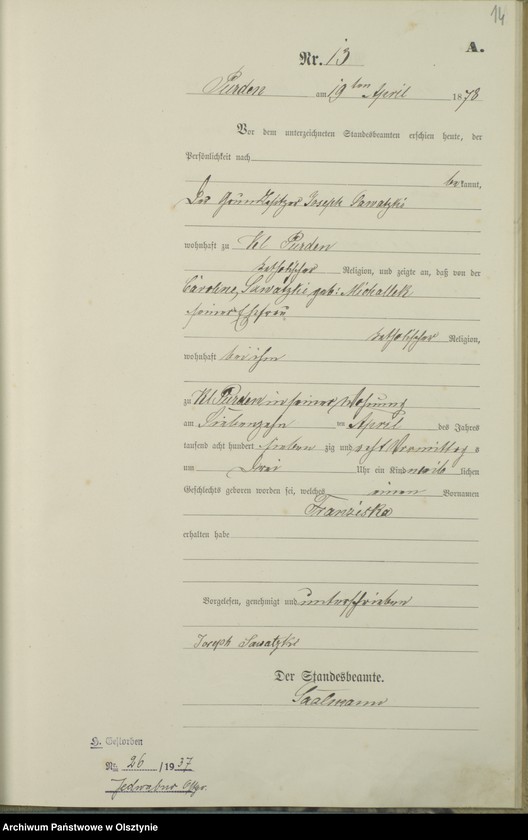 14
A.
Nr. 13
Purden am 19ten April 1878
Vor dem unterzeichneten Standesbeamten erschien heute, der
Persönlichkeit nach
bekannt,
Der Grundbesitzer Joseph Sawatzki
wohnhaft zu Kl Purden
katholischer Religion, und zeigte an, daß von der
Caroline, Sawatzki geb: Michallek
seiner Ehefrau
katholischer Religion,
wohnhaft bei ihm
zu Kl Purden in seiner Wohnung
am Siebenzehn ten April des Jahres
tausend acht hundert sieben zig und acht Vormittags
um Drei Uhr ein Kind weib lichen
Geschlechts geboren worden sei, welches einen Vornamen
Franziska
erhalten habe
Vorgelesen, genehmigt und unterschrieben
Joseph Sawatzki
Der Standesbeamte.
Saalmann
H. Gestorben
Nr. 26 /1937
Jedwabno
Archiwum Państwowe w Olsztynie